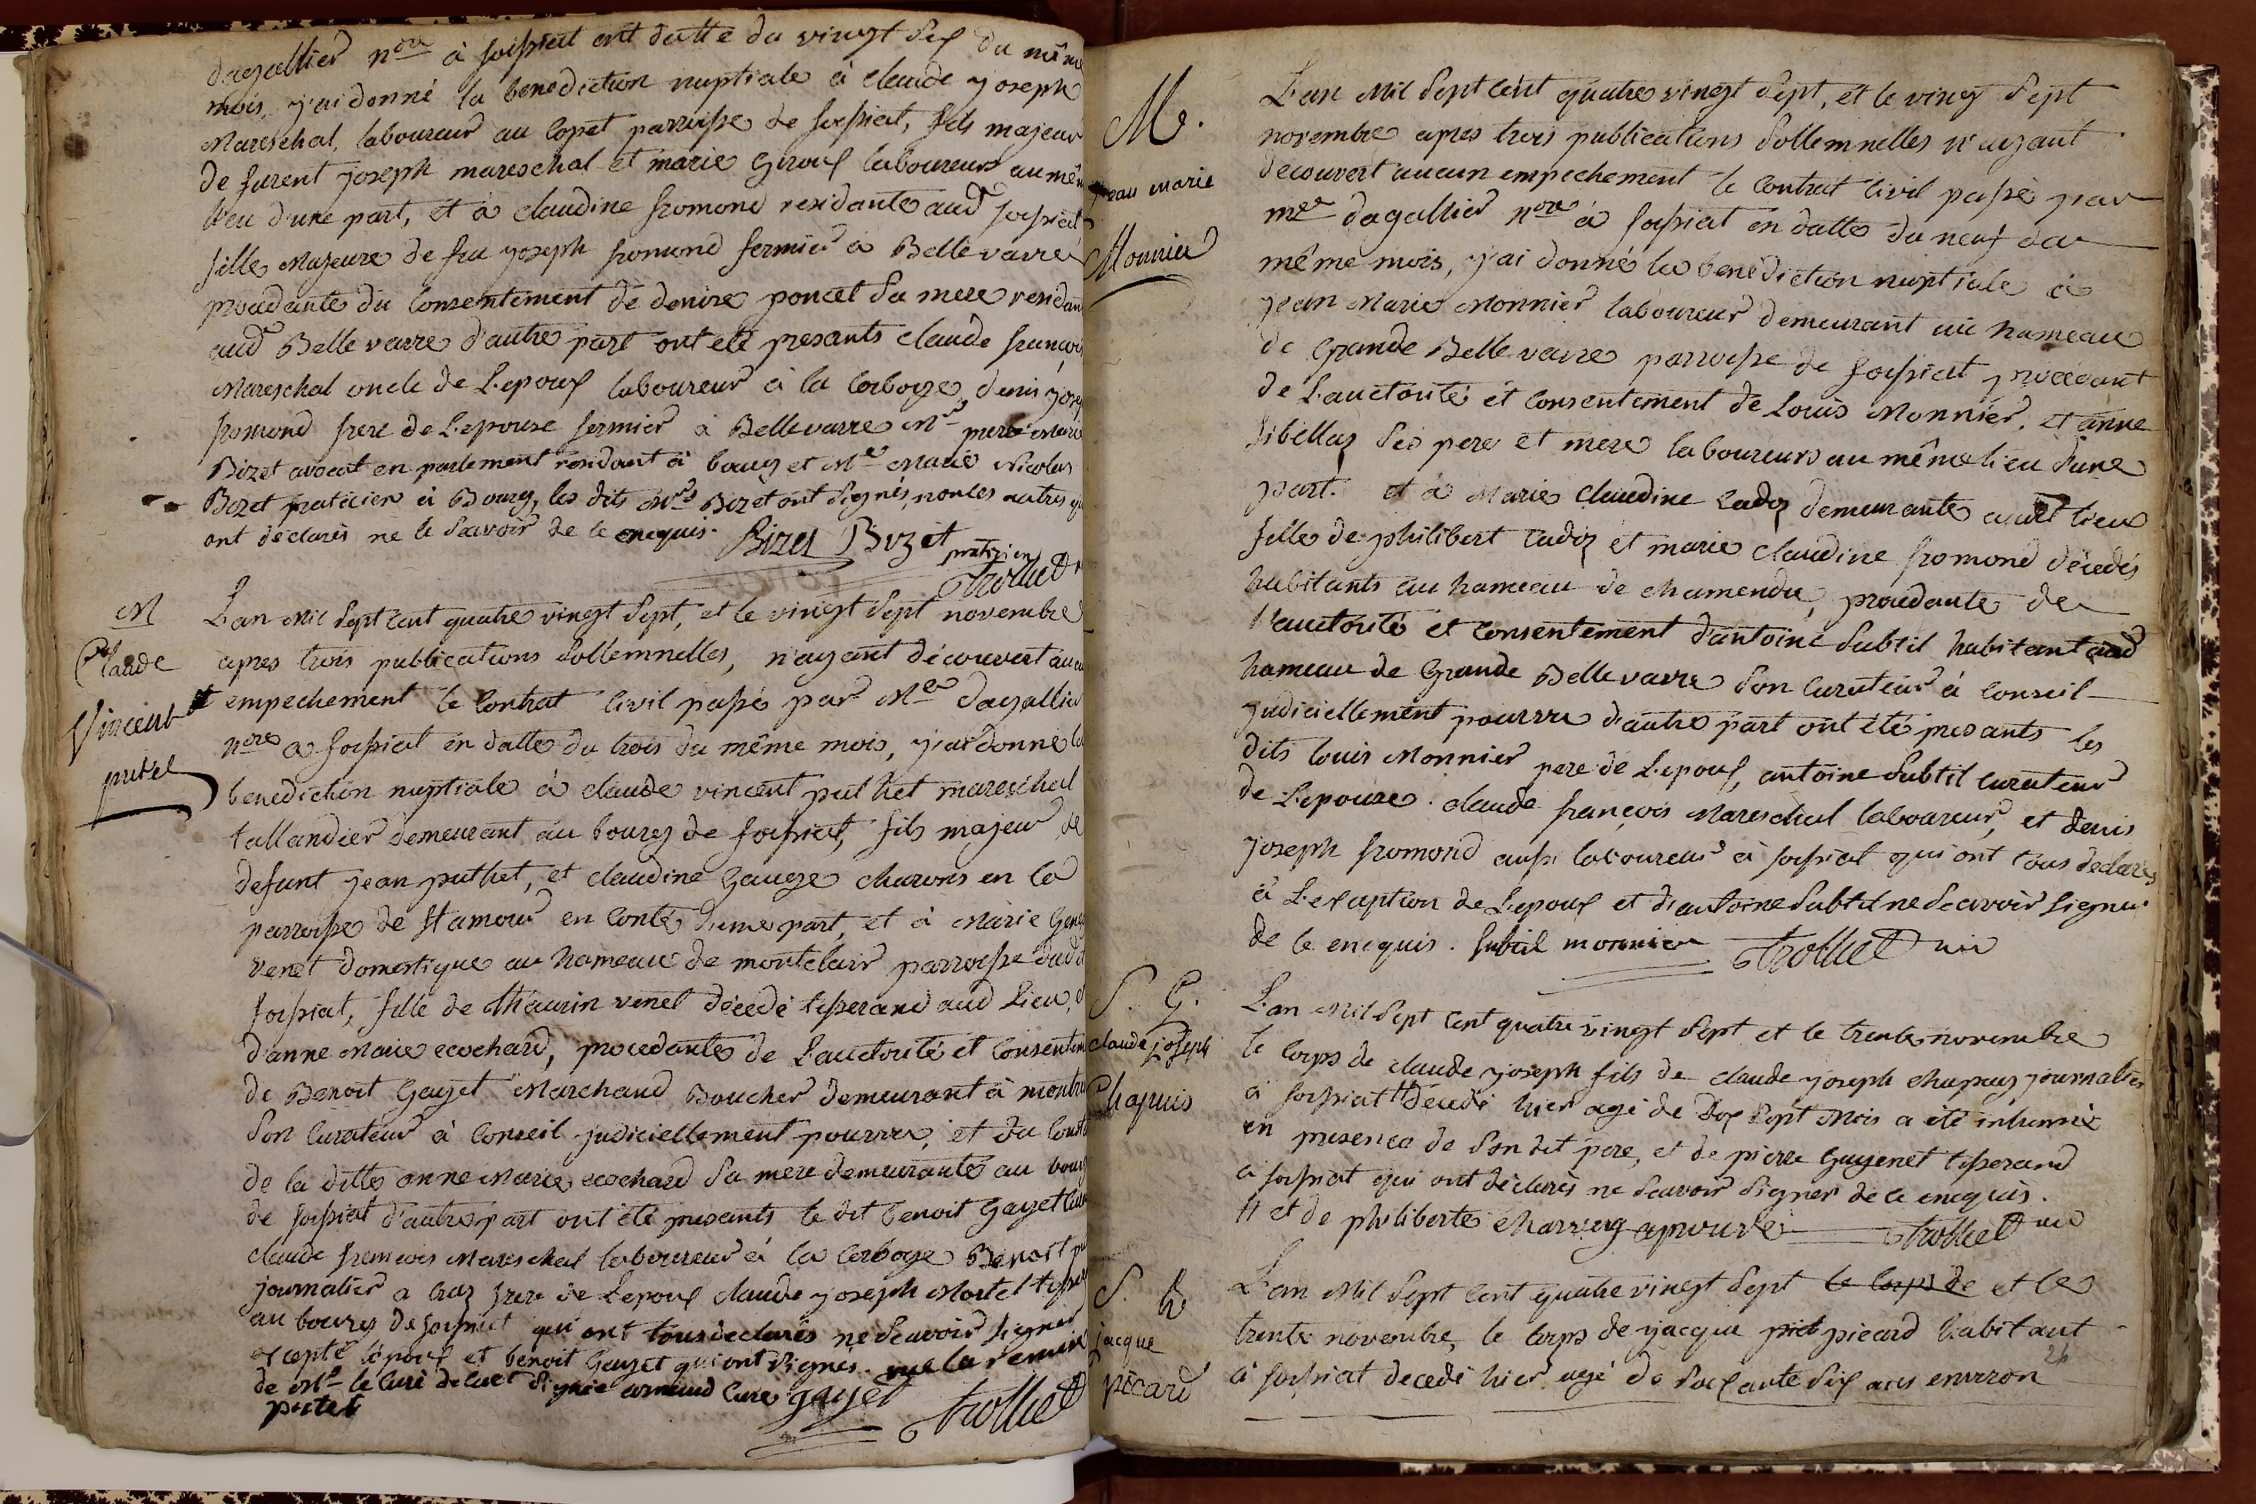 dagallier n.re à forsiat en datte du vingt six du même
mois, j'ai donné la benediction nuptiale à claude joseph
Mareschal, laboureur au Copet parroisse de forsiat, fils majeur
de furent joseph mareschal et marie Giroux laboureurs au même
lieu d'une part, et à claudine fromond residante aud forsiat
fille Majeure de feu joseph fromond fermier à Bellevavre
procedante du consentement de denise poncet sa mere residante
aud Bellevavre d'autre part ont été presants claude françois
Mareschal oncle de L'epoux laboureur à la Corboze, denis joseph
fromond frere de L'epouse fermier à Bellevavre M.re pierre Marie
Bizet avocat en parlement residant à bourg et M.e Marie Nicolas
Bizet praticien à Bourg, les dits M.rs Bizet ont signés, non les autres qui
ont déclarés ne le sçavoir de ce enequis. Bizet Bizet
praticien
Trolliet
M
Claude
Vincent
putet
L'an Mil Sept Cent quatre vingt Sept, et le vingt Sept novembre
apres trois publications Sollemnelles, n'ayant découvert aucun
empechement le Contrat Civil passé par M.e Dagallier
n.re à forsiat en datte du trois du même mois, j'ai donné la
benediction nuptiale à claude vincent puthet mareschal
tallandier demeurant au bourg de forsiat, fils majeur de
defunt jean puthet, et claudine Gauge charons en la
parroisse de St amour en Conté d'une part, et à Marie
venet domestique au hameau de montclair parroisse dudit
forsiat, fille de Thaurin venet décedé tisserand aud Lieu, et
d'anne Marie ecochard, procedante de L'auctorité et Consentement
de Benoit Gayet Marchand Boucher demeurant à
Son Curateur à Conseil judiciellement pourvu, et du
de la ditte anne Marie ecochard Sa mere demeurante au bourg
de forsiat d'autre part ont été presants le dit benoit Gayet
claude francois Mareschal laboureur à la Corboze Benoit
journalier a frere de L'epoux claude joseph Morel
au bourg de forsiat qui ont tous declarés ne Scavoir Signer
excepté l'epoux et benoit Gayet qui ont Signés.
de M.r le Curé
putet gayet Trolliet
M.
jean marie
Monnier
L'an Mil Sept Cent quatre vingt Sept, et le vingt Sept
novembre apres trois publications Sollemnelles n'ayant
découvert aucun empechement le Contrat Civil passé par
m.re dagallier n.re à forsiat en datte du neuf du
même mois, j'ai donné la benediction nuptiale à
jean Marie Monnier laboureur demeurant au hameau
de Grande Bellevavre parroisse de forsiat procedant
de L'auctorité et Consentement de Louis Monnier, et anne
Sibellas Ses pere et mere laboureurs au même lieu d'une
part. et à Marie Claudine Cadoz demeurante audt lieu
fille de philibert Cadoz et marie claudine fromond décedés
habitants au hameau de chamendu, procedante de
l'auctorité et Consentement d'antoine Subtil habitant aud
hameau de Grande Bellevavre Son Curateur à Conseil
judiciellement pourvu d'autre part ont été presants les
dits Louis Monnier pere de L'epoux, antoine Subtil curateur
de L'epouse. claude françois Mareschal laboureur, et denis
joseph fromond aussi laboureur à forsiat qui ont tous declarés
à L'exeption de L'epoux et d'antoine Subtil ne Scavoir Signer
de ce enequis. Subtil monnier Trolliet vic
S. G.
claude joseph
Chapuis
L'an Mil Sept Cent quatre vingt Sept et le trente novembre
le Corps de claude joseph fils de claude joseph chapuy journalier
à forsiat # décedé hier agé de dix Sept Mois a été inhumé
en presence de Son dit pere, et de pierre Guyenet tisserand
à forsiat qui ont déclarés ne Scavoir Signer de ce enequis.
# et de philiberte aprouvé Trolliet vic
S. h
jacque
picard
L'an Mil Sept Cent quatre vingt Sept le Corps de et le
trente novembre, le Corps de jacque piet picard habitant
à forsiat decedé hier agé de Soixante Six ans environ